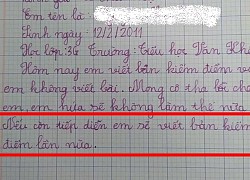 Em tên là:
Sinh ngày: 12/2/2011
Học lớp: 3G Trường: Tiểu học Văn Khê
Hôm nay em viết bản kiểm điểm vì
em không viết bài. Mong cô tha lỗi cho
em, em hứa sẽ không làm thế nữa.
Nếu còn tiếp diễn em sẽ viết bản kiểm
điểm lần nữa.